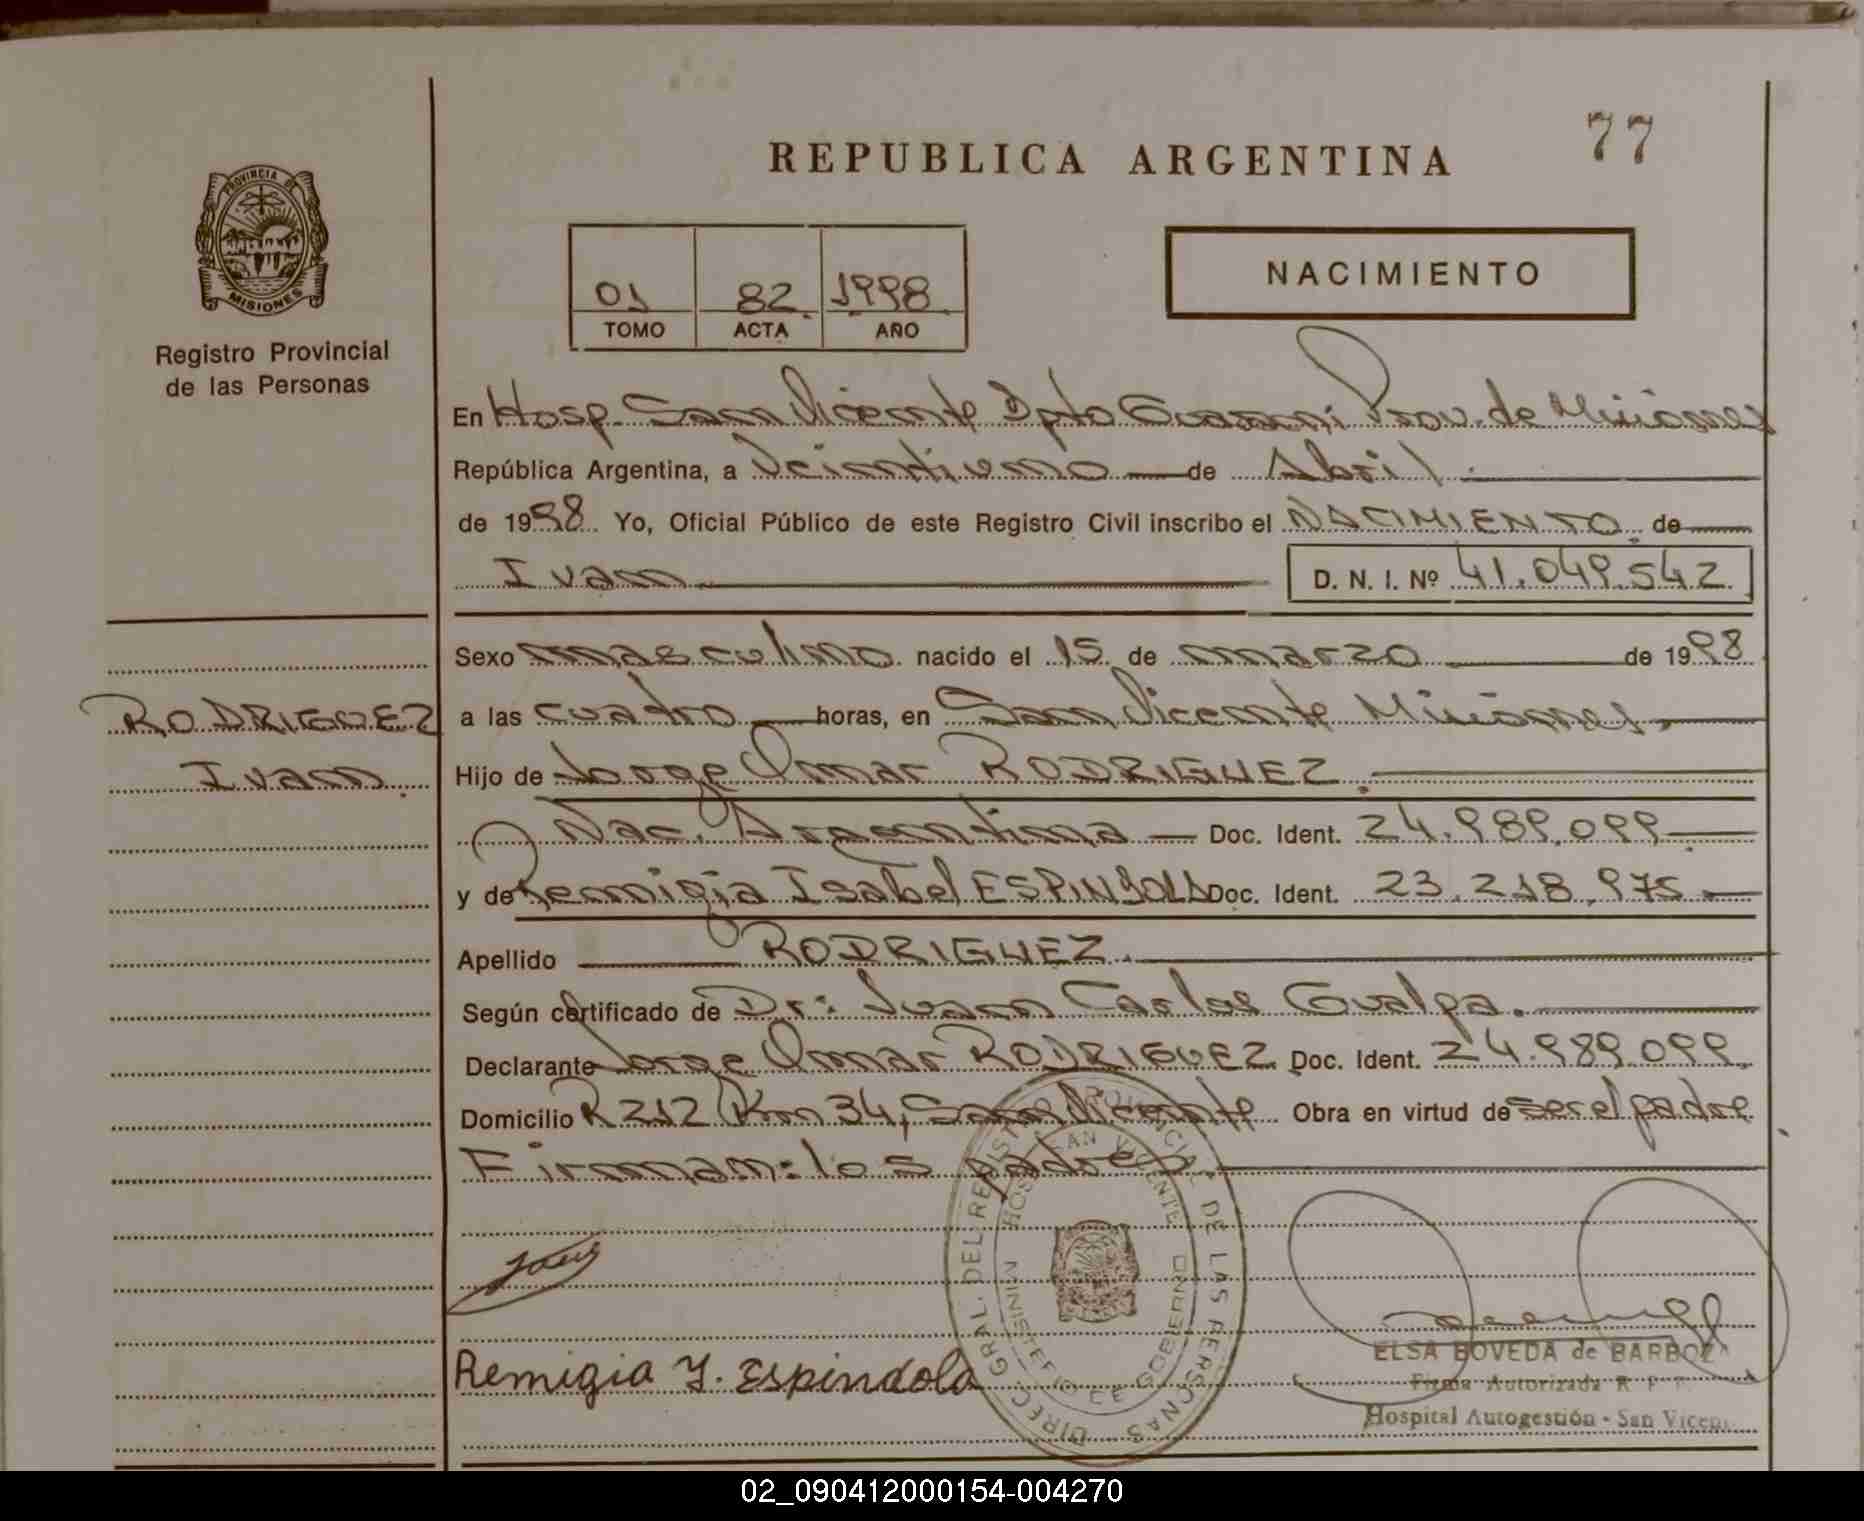 REPUBLICA ARGENTINA
77
PROVINCIA DE
MISIONES
Registro Provincial
de las Personas
01 82 1998
TOMO ACTA AÑO
NACIMIENTO
En Hosp. San Vicente Dpto Guaraní Prov. de Misiones
República Argentina, a Veintiuno de Abril
de 1998 Yo, Oficial Público de este Registro Civil inscribo el NACIMIENTO de
Ivan D. N. I. Nº 41.049.542
Sexo masculino nacido el 15 de marzo de 1998
RODRIGUEZ
Ivan
a las cuatro horas, en San Vicente Misiones.
Hijo de Jorge Omar RODRIGUEZ.
Nac. Argentina Doc. Ident. 24.989.099
y de Remigia Isabel ESPINDOLA Doc. Ident. 23.218.975
Apellido RODRIGUEZ.
Según certificado de Dr: Juan Carlos Gualpa.
Declarante Jorge Omar RODRIGUEZ Doc. Ident. 24.989.099.
Domicilio R 212 Km 34, San Vicente Obra en virtud de ser el padre
Firman: los padres
DIREC. GRAL. DEL REGISTRO PROVINCIAL DE LAS PERSONAS
HOSP. SAN VICENTE
MINISTERIO DE GOBIERNO
Remigia Y. Espindola
ELSA BOVEDA de BARBOZ
Firma Autorizada R. P. P.
Hospital Autogestión - San Vicen
02_090412000154-004270